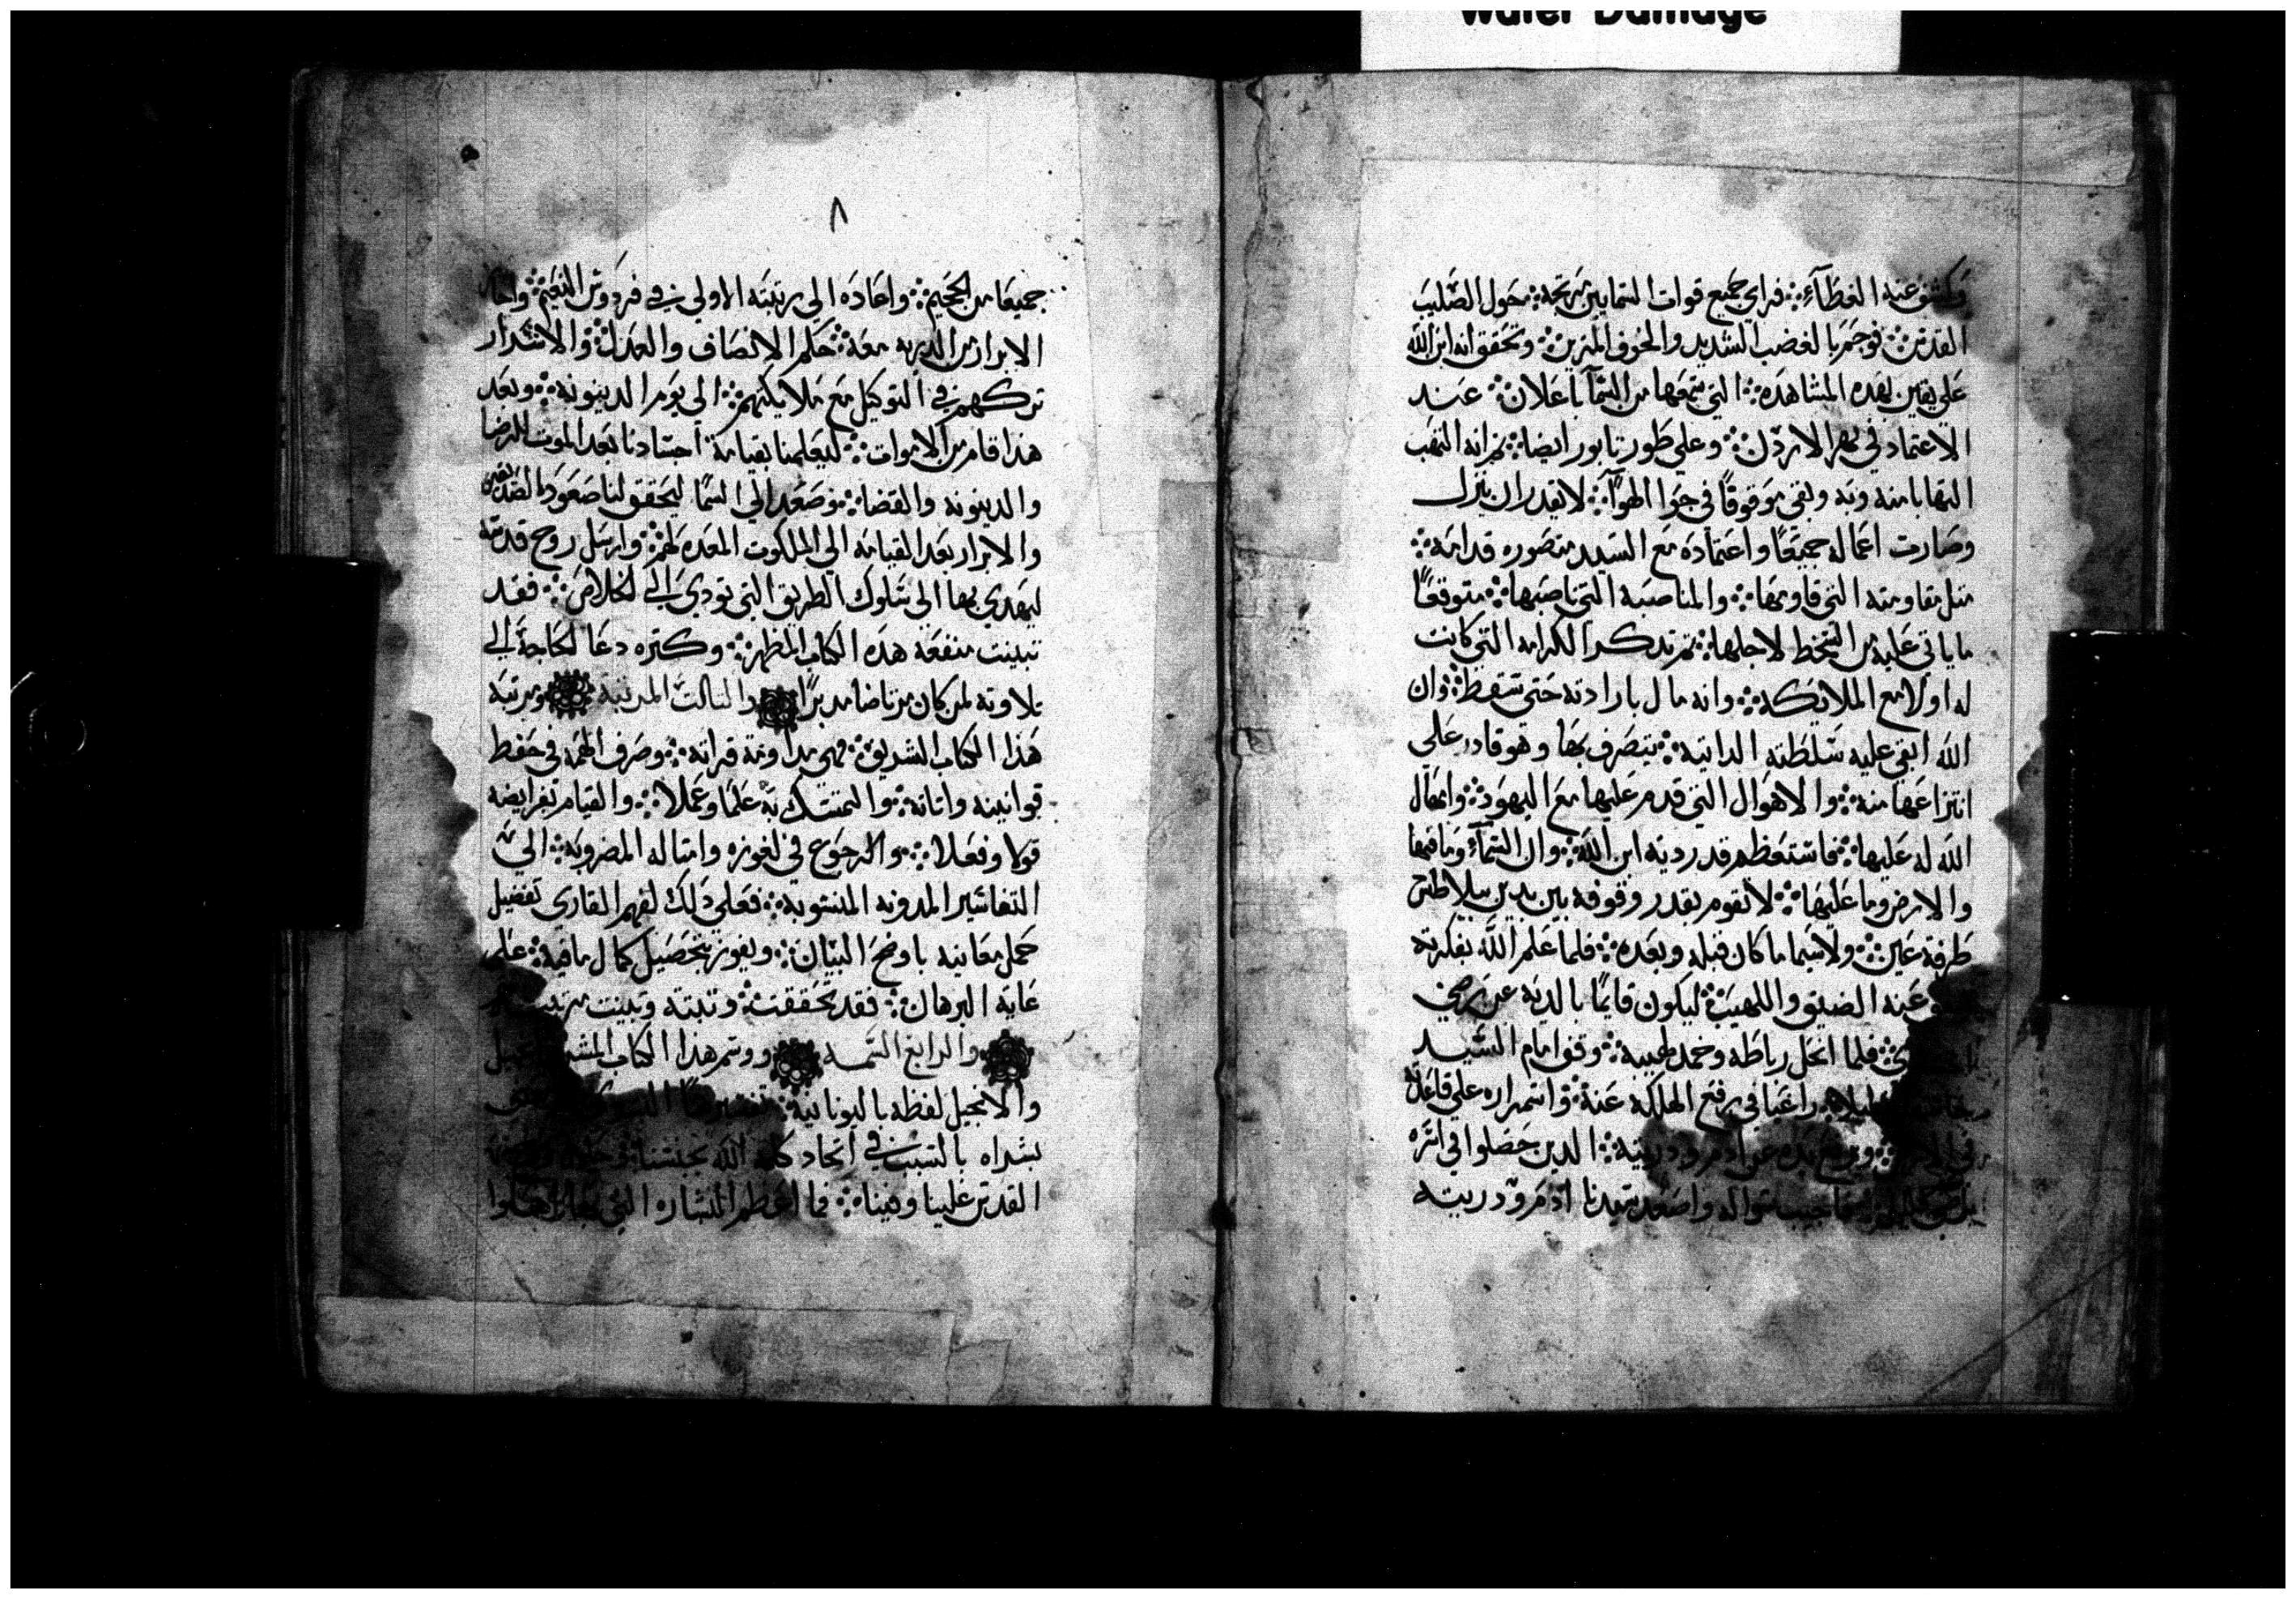 Water Damage
وكشف عنه الغطآء ܀ فراي جميع قوات السمايين مرتجه ܀ حول الصليب
القدس ܀ فوجم بالغضب الشديد والخوف المزين ܀ وتحقق انه ابن الله
علي يقين بهده المشاهده ܀ التي سمعها من السمآ باعلان ܀ عند
الاعتماد في نهر الاردن ܀ وعلي طور تابور ايضا ܀ ثم انه التهب
التهابا منه وبه وبقي موقوفًا في جو الهوآ ܀ لا يقدر ان ينزل
وصارت اعماله جميعًا واعتماده مع السيد متصوره قدامه ܀
مثل مقاومته التي قاومها ܀ والمناصبه التي ناصبها ܀ متوقعًا
ما ياتي عليه من السخط لاجلها ܀ ثم تدكر الكرامه التي كانت
له اولا مع الملايكه ܀ وانه مال بارادته حتي سقط ܀ وان
الله ابقي عليه سلطته الداتيه ܀ يتصرف بها وهو قادر علي
انتزاعها منه ܀ والاهوال التي قدم عليها مع اليهود ܀ وامهال
الله له عليها ܀ فاستعظم قدر دية ابن الله ܀ وان السمآء وما فيها
والارض وما عليها ܀ لا تقوم بقدر وقوفه بين يدين بيلاطس
طرفة عين ܀ ولا سيما ما كان قبله وبعده ܀ فلما علم الله بفكرته
عنه الضيق واللهيب ܀ ليكون قايمًا بالديه عن
فلما انحل رباطه وخمد لهيبه ܀ وقف امام السيد
راغبا في رفع الهلكه عنه ܀ واستمراره علي قاعدته
ويرفع يده عن ادم ودريته ܀ الدين حصلوا في اسره
سواله واصعد سيدنا ادم ودريته
٨
جميعًا من الجحيم ܀ واعاده الي رتبته الاولي في فردوس النعيم ܀
الابرار من الدريه معه ܀ حكم الانصاف والعدل ܀ والاشرار
تركهم في التوكيل مع ملايكتهم ܀ الي يوم الدينونه ܀ وبعد
هدا قام من الاموات ܀ ليعلمنا بقيامة اجسادنا بعد الموت
والدينونه والقضا ܀ وصعد الي السما ليحقق لنا صعود الصديقين
والابرار بعد القيامه الي الملكوت المعده لهم ܀ وارسل روح قدسه
ليهدي بها الي سلوك الطريق التي تودي الي الخلاص ܀ فقد
تبينت منفعة هده الكتاب المطهر ܀ وكتره دعا الحاجة الي
تلاوته لمن كان مرتاضا مدبرًا والتالت المرتبة ومرتبه
هذا الكتاب الشريف ܀ فهي مداومة قراته ܀ وصرف الهمه في حفظ
قوانينه واياته ܀ والتمسك به علمًا وعملا ܀ والقيام بفرايضه
قولا وفعلا ܀ والرجوع في لغوزه وامتاله المضروبه ܀ الي
التفاسير المدونه المنسوبه ܀ فعلي دلك لفهم القاري تفضيل
جمل معانيه باوضح البيان ܀ ويفوز بتحصيل كمال ما فيه ܀ علي
غاية البرهان ܀ فقد تحققت ܀ وتبته وتبينت
والرابع السمه ووسم هذا الكتاب
والانجيل لفظه باليونانية
بشراه بالسبب في اتحاد كلمة الله بجنسنا
القدس علينا وفينا ܀ فما اعظم البشاره التي